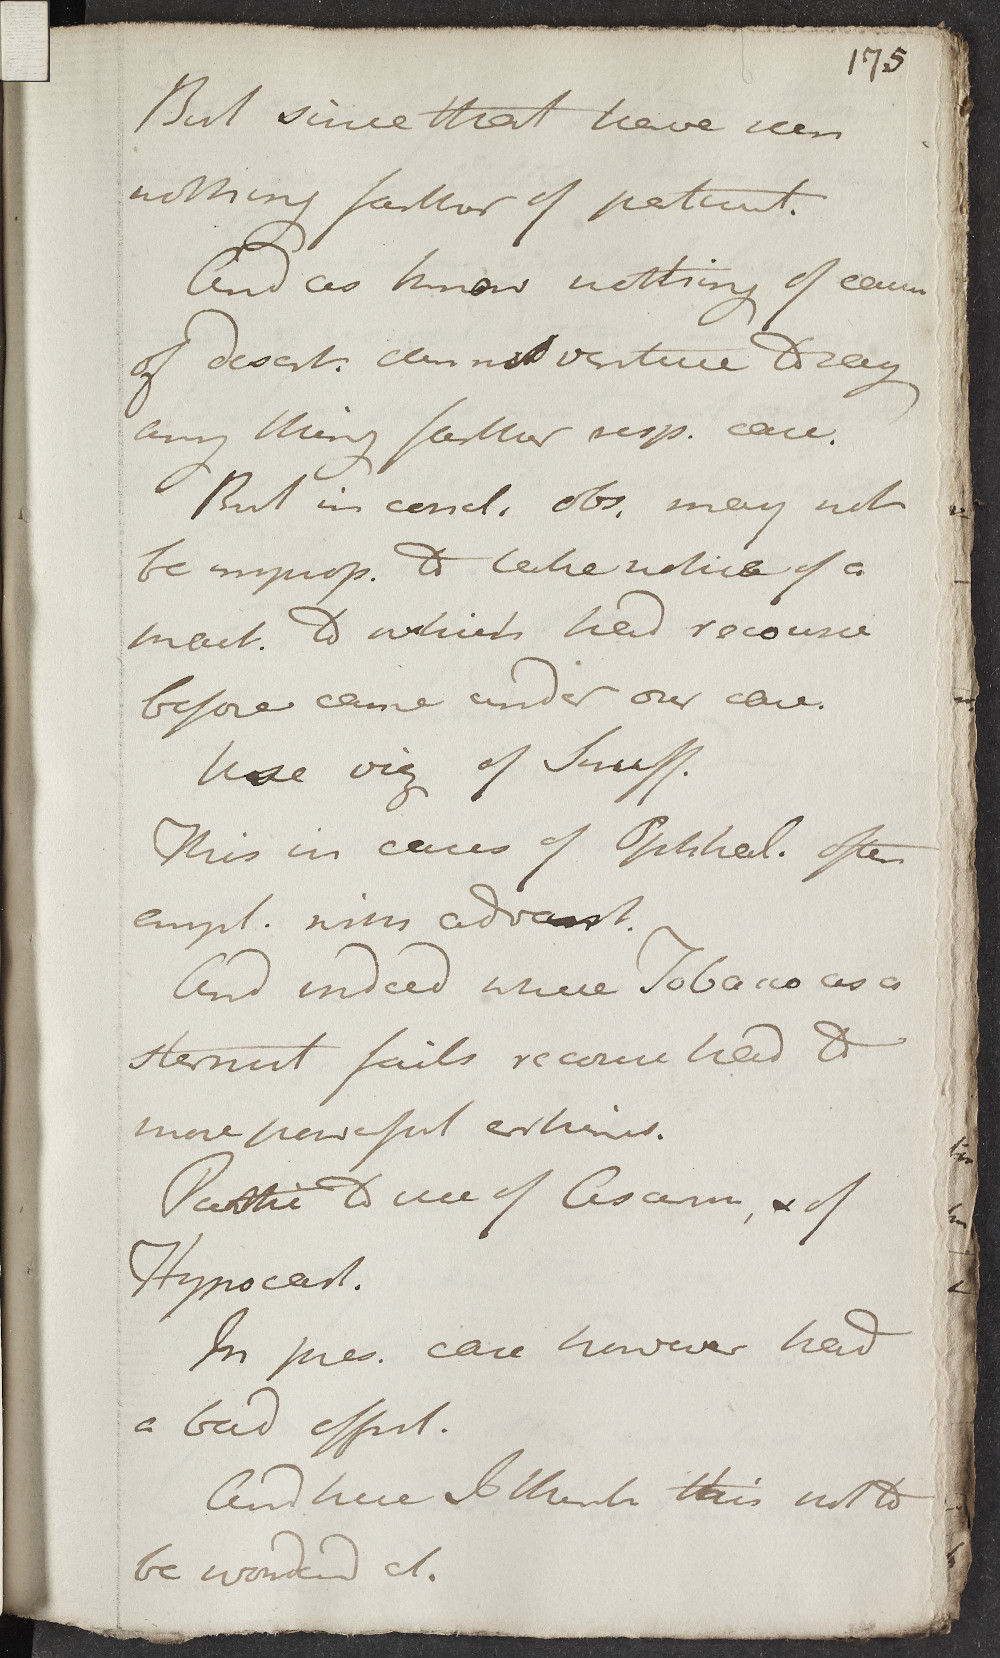 175
But since that have seen
nothing farther of patient.
And as know nothing of caus
of desert. can not venture to say
any thing farther resp. case.
But in concl. obs. may not
be improp. to take notice of a
med. to which had recourse
before came under our care.
Use viz of Snuff.
This in cases of Ophthal. often
empl. with advant.
And indeed where Tobacco as a
sternut fails recourse had to
more powerful errhines.
Partic to use of Asarum, & of
Hypocast.
In pres. case however had
a bad effect.
And here I think this not to
be wondered at.